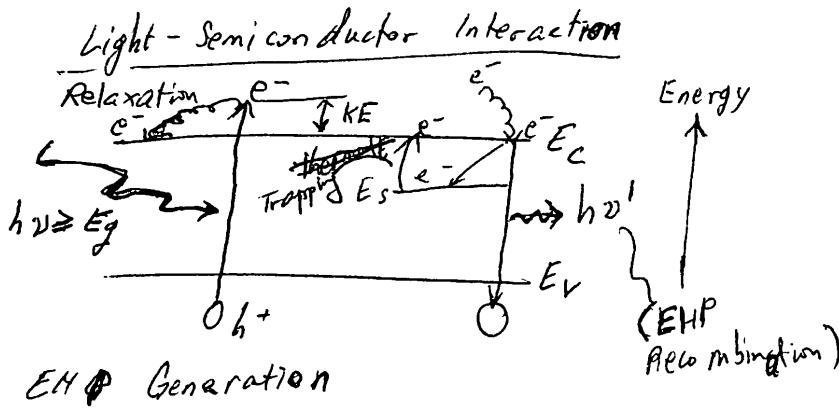 Light-Semiconductor Interaction
Relaxation
e⁻
e⁻
KE
e⁻
e⁻
e⁻
E_C
Energy
Trapping
E_s
e⁻
hν ≥ Eg
hν'
E_V
h⁺
(EHP
Recombination)
EHP Generation